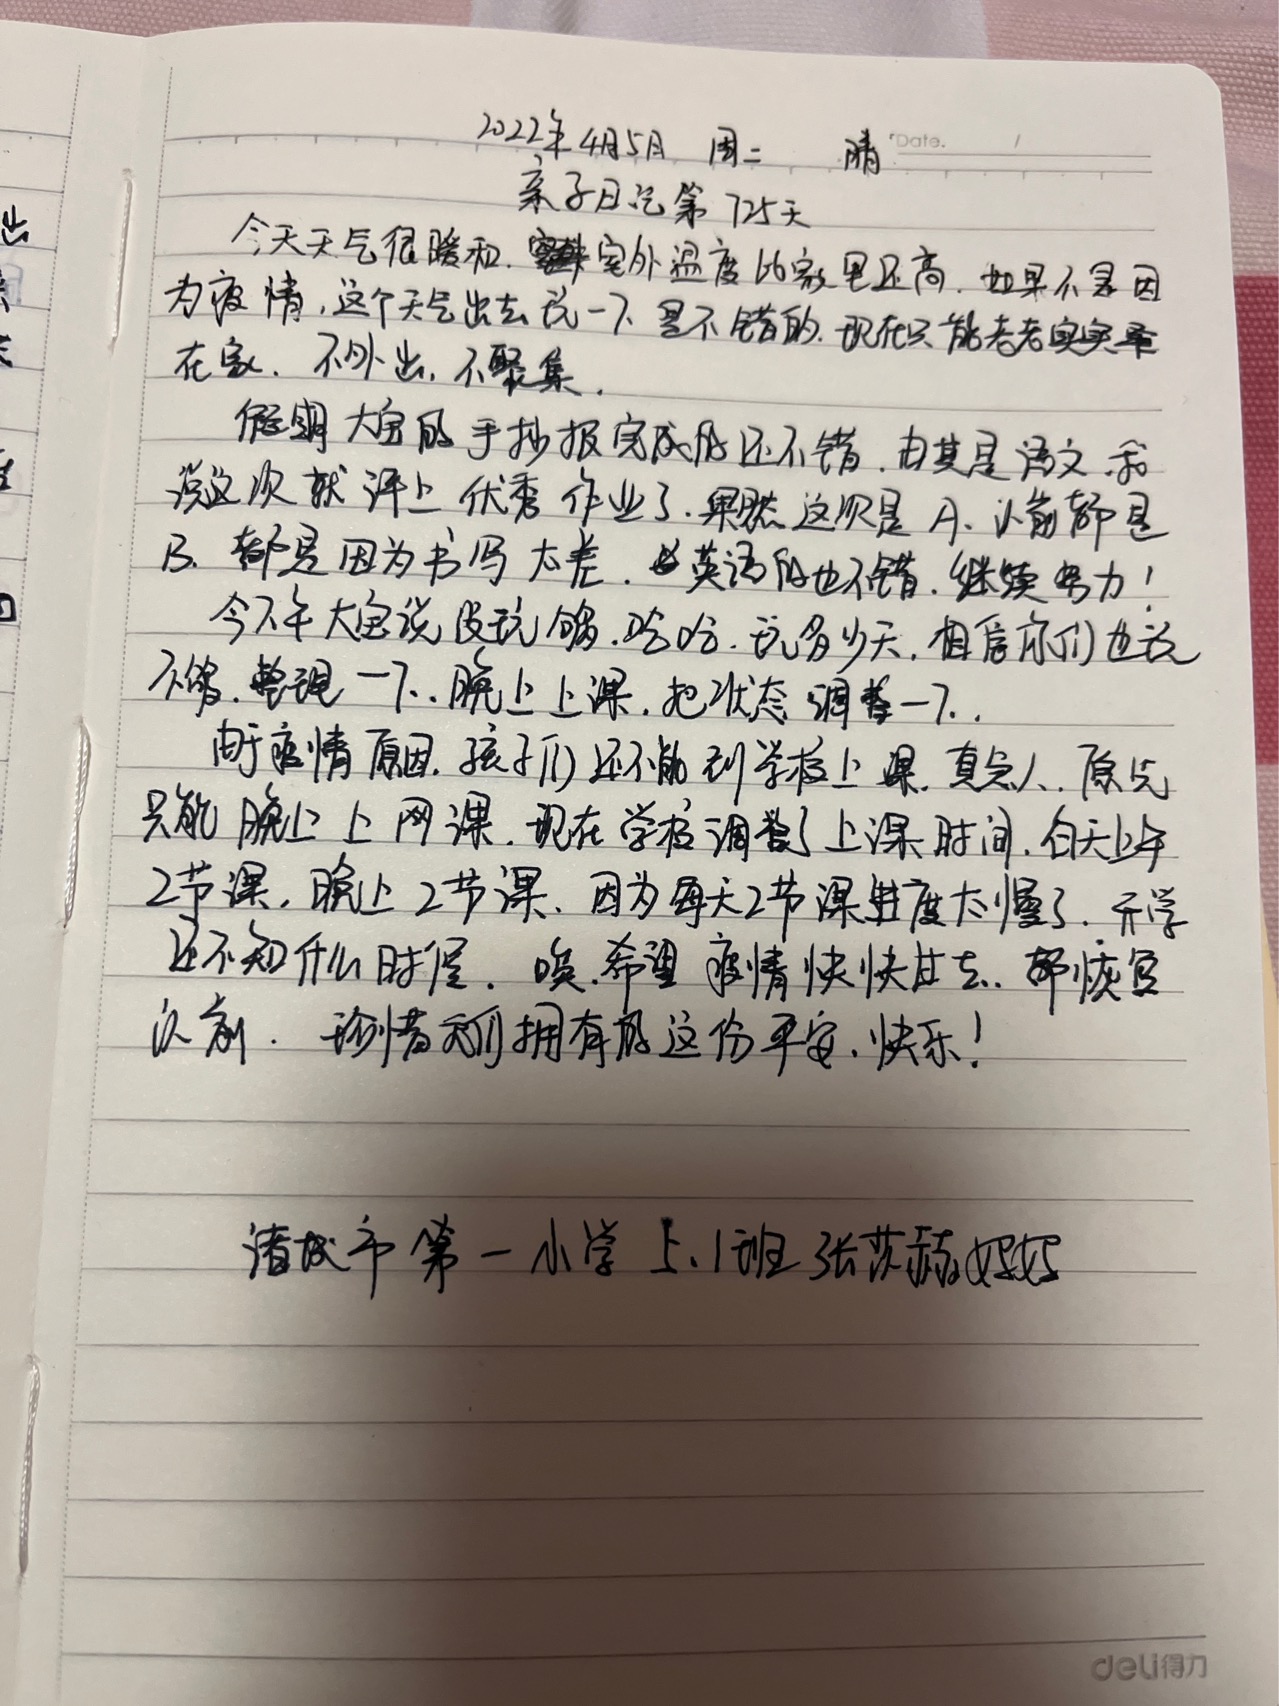 2022年4月5日 周二 晴 Date. /
亲子日记第725天
今天天气很暖和.室外温度比家里还高.如果不是因
为疫情,这个天气出去玩一下是不错的.现在只能老老实实
在家.不外出,不聚集.
假期大宝的手抄报完成的还不错.由其是语文.我
说这次就评上优秀作业了.果然这次是A.以前都是
B.都是因为书写太差.英语的也不错.继续努力!
今下午大宝说没玩够.哈哈.玩多少天.相信你们也说
不够.整理一下.晚上上课.把状态调整一下.
由于疫情原因.孩子们还不能到学校上课.真急人.原先
只能晚上上网课.现在学校调整了上课时间.白天上午
2节课,晚上2节课.因为每天2节课进度太慢了.开学
还不知什么时候.唉.希望疫情快快过去.都恢复
以前.珍惜我们拥有的这份平安、快乐!
诸城市第一小学5、1班张莎赫妈妈
出
deli得力